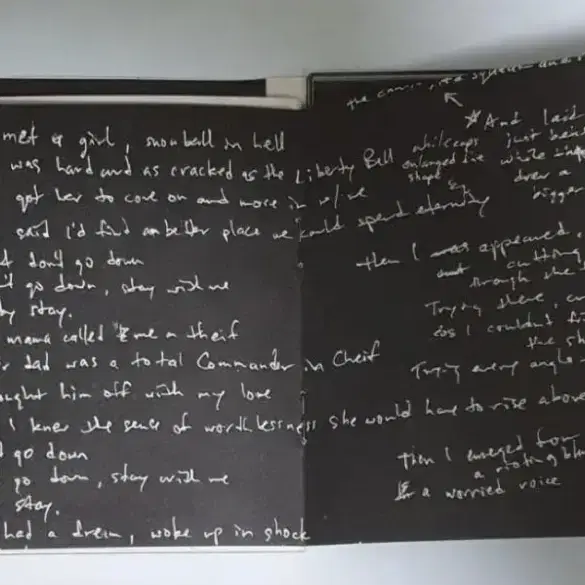 met a girl, snowball in hell
was hard and as cracked as the Liberty Bell
got her to come on and move in w/ me
said I'd find a better place we could spend eternity
don't go down
go down, stay with me
stay.
mama called me a theif
dad was a total Commander in Cheif
him off with my love
I knew the sense of worthlessness she would have to rise above
go down
go down, stay with me
stay.
had a dream, woke up in shock
And laid
whitecaps just
enlarged the while
shape drew a
bigger
then I appeared,
cutting
through the
Trying there,
as I couldn't
the
Trying every angle
Then I emerged from
a
a worried voice